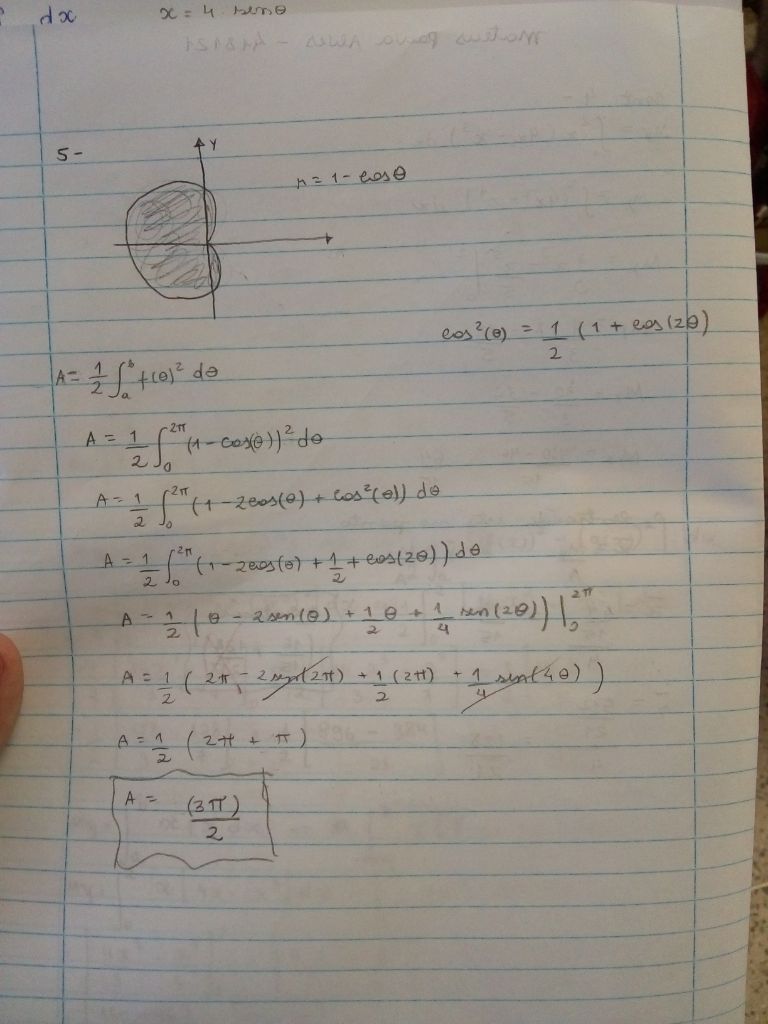 dx x = 4 senθ
5-
y
r = 1 - cosθ
cos²(θ) = 1/2 (1 + cos(2θ)
A = 1/2 ∫ₐᵇ f(θ)² dθ
A = 1/2 ∫₀^2π (1 - cos(θ))² dθ
A = 1/2 ∫₀^2π (1 - 2cos(θ) + cos²(θ)) dθ
A = 1/2 ∫₀^2π (1 - 2cos(θ) + 1/2 + cos(2θ)) dθ
A = 1/2 (θ - 2sen(θ) + 1/2 θ + 1/4 sen(2θ)) |₀^2π
A = 1/2 (2π - 2sen(2π) + 1/2 (2π) + 1/4 sen(4θ))
A = 1/2 (2π + π)
A = (3π)/2